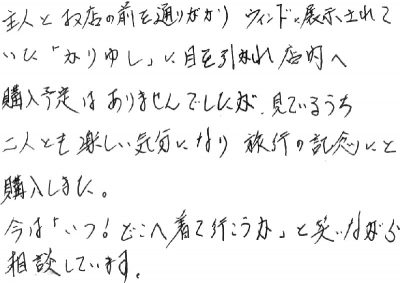 主人とお店の前を通りがかり ウィンドに展示されて
いた「かりゆし」に目を引かれ店内へ
購入予定はありませんでしたが、見ているうち
二人とも楽しい気分になり 旅行の記念にと
購入しました。
今は「いつ!どこへ着て行こうか」と笑いながら
相談しています。